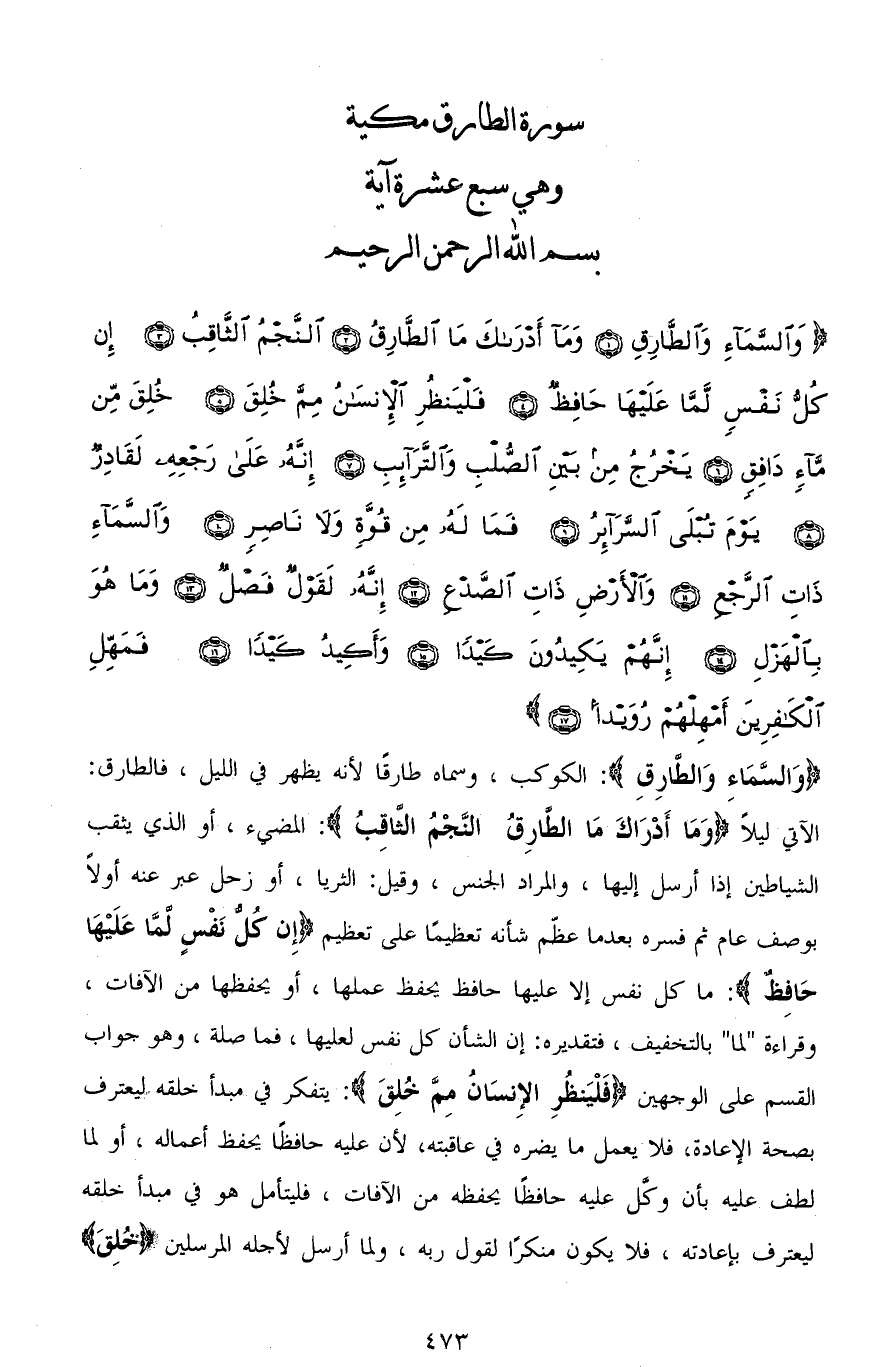 سورة الطارق مكية
وهي سبع عشرة آية
بسم الله الرحمن الرحيم
﴿ وَٱلسَّمَآءِ وَٱلطَّارِقِ ۝١ وَمَآ أَدْرَىٰكَ مَا ٱلطَّارِقُ ۝٢ ٱلنَّجْمُ ٱلثَّاقِبُ ۝٣ إِن
كُلُّ نَفْسٍ لَّمَّا عَلَيْهَا حَافِظٌ ۝٤ فَلْيَنظُرِ ٱلْإِنسَـٰنُ مِمَّ خُلِقَ ۝٥ خُلِقَ مِن
مَّآءٍ دَافِقٍ ۝٦ يَخْرُجُ مِنۢ بَيْنِ ٱلصُّلْبِ وَٱلتَّرَآئِبِ ۝٧ إِنَّهُۥ عَلَىٰ رَجْعِهِۦ لَقَادِرٌ
۝٨ يَوْمَ تُبْلَى ٱلسَّرَآئِرُ ۝٩ فَمَا لَهُۥ مِن قُوَّةٍ وَلَا نَاصِرٍ ۝١٠ وَٱلسَّمَآءِ
ذَاتِ ٱلرَّجْعِ ۝١١ وَٱلْأَرْضِ ذَاتِ ٱلصَّدْعِ ۝١٢ إِنَّهُۥ لَقَوْلٌ فَصْلٌ ۝١٣ وَمَا هُوَ
بِٱلْهَزْلِ ۝١٤ إِنَّهُمْ يَكِيدُونَ كَيْدًا ۝١٥ وَأَكِيدُ كَيْدًا ۝١٦ فَمَهِّلِ
ٱلْكَـٰفِرِينَ أَمْهِلْهُمْ رُوَيْدَۢا ۝١٧ ﴾
﴿وَالسَّمَاءِ وَالطَّارِقِ ﴾: الكوكب ، وسماه طارقًا لأنه يظهر في الليل ، فالطارق:
الآتي ليلاً ﴿وَمَا أَدْرَاكَ مَا الطَّارِقُ النَّجْمُ الثَّاقِبُ ﴾: المضيء ، أو الذي يثقب
الشياطين إذا أرسل إليها ، والمراد الجنس ، وقيل: الثريا ، أو زحل عبر عنه أولاً
بوصف عام ثم فسره بعدما عظّم شأنه تعظيمًا على تعظيم ﴿إِن كُلُّ نَفْسٍ لَّمَّا عَلَيْهَا
حَافِظٌ ﴾: ما كل نفس إلا عليها حافظ يحفظ عملها ، أو يحفظها من الآفات ،
وقراءة "لما" بالتخفيف ، فتقديره: إن الشأن كل نفس لعليها ، فما صلة ، وهو جواب
القسم على الوجهين ﴿فَلْيَنظُرِ الإِنسَانُ مِمَّ خُلِقَ ﴾: يتفكر في مبدأ خلقه ليعترف
بصحة الإعادة، فلا يعمل ما يضره في عاقبته، لأن عليه حافظًا يحفظ أعماله ، أو لما
لطف عليه بأن وكَّل عليه حافظًا يحفظه من الآفات ، فليتأمل هو في مبدأ خلقه
ليعترف بإعادته ، فلا يكون منكرًا لقول ربه ، ولما أرسل لأجله المرسلين ﴿خُلِقَ﴾
٤٧٣